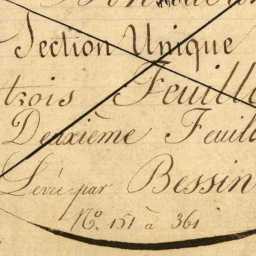 Section Unique
trois Feuill
Deuxième Feuil
Levée par Bessin
N.º 151 à 361